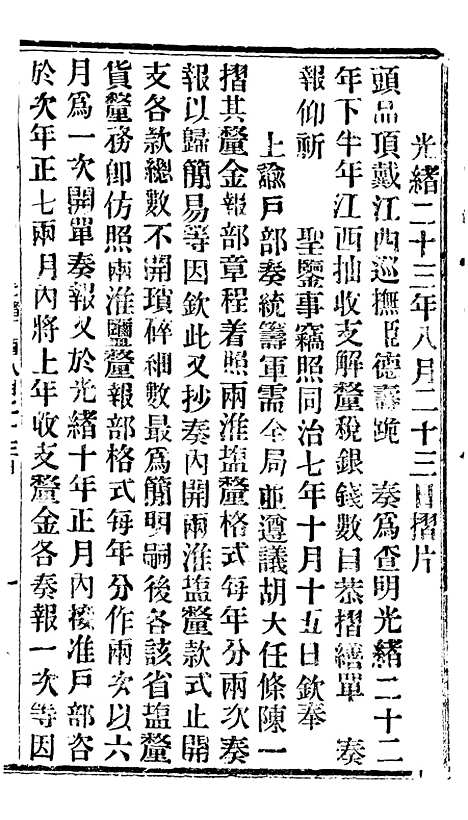 光緒二十三年八月二十三日摺片
頭品頂戴江西巡撫臣德壽跪　奏爲查明光緒二十二
年下半年江西抽收支解釐稅銀錢數目恭摺繕單　奏
報仰祈　聖鑒事竊照同治七年十月十五日欽奉
上諭戶部奏統籌軍需全局並遵議胡大任條陳一
摺其釐金報部章程着照兩淮塩釐格式每年分兩次奏
報以歸簡易等因欽此又抄奏內開兩淮塩釐款式止開
支各款總數不開瑣碎細數最爲簡明嗣後各該省塩釐
貨釐務卽仿照兩淮鹽釐報部格式每年分作兩次以六
月爲一次開單奏報又於光緒十年正月內接准戶部咨
於次年正七兩月內將上年收支釐金各奏報一次等因